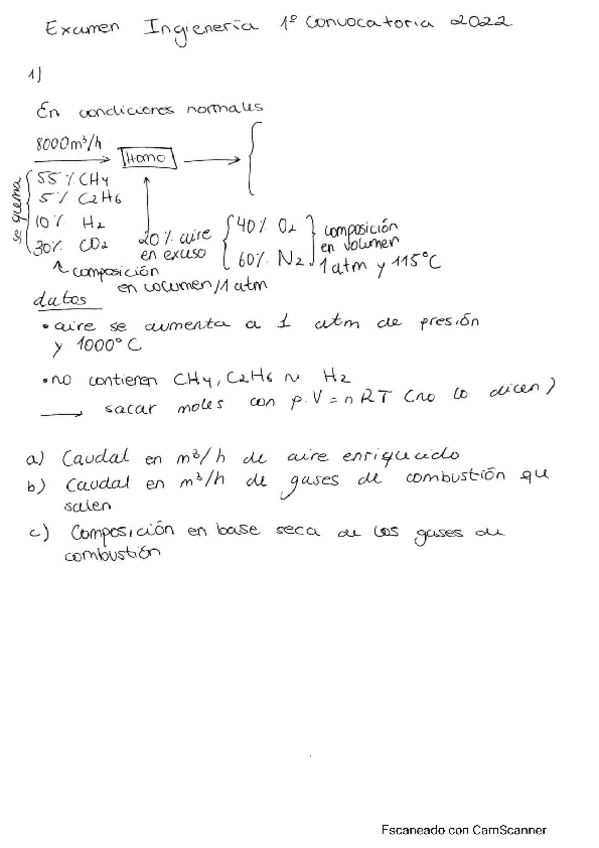 Examen Ingieneria 1º Convocatoria 2022
1)
En condiciones normales
8000 m³/h
Horno
se quema
55% CH4
5% C2H6
10% H2
30% CO2
20% aire
en exceso
40% O2
60% N2
composición
en volumen
1 atm y 115ºC
composición
en volumen/1 atm
datos
• aire se aumenta a 1 atm de presión
y 1000ºC
• no contienen CH4, C2H6 ni H2
→ sacar moles con p.V=nRT (no lo dicen)
a) Caudal en m³/h de aire enriquecido
b) Caudal en m³/h de gases de combustión que
salen
c) Composición en base seca de los gases de
combustión
Escaneado con CamScanner